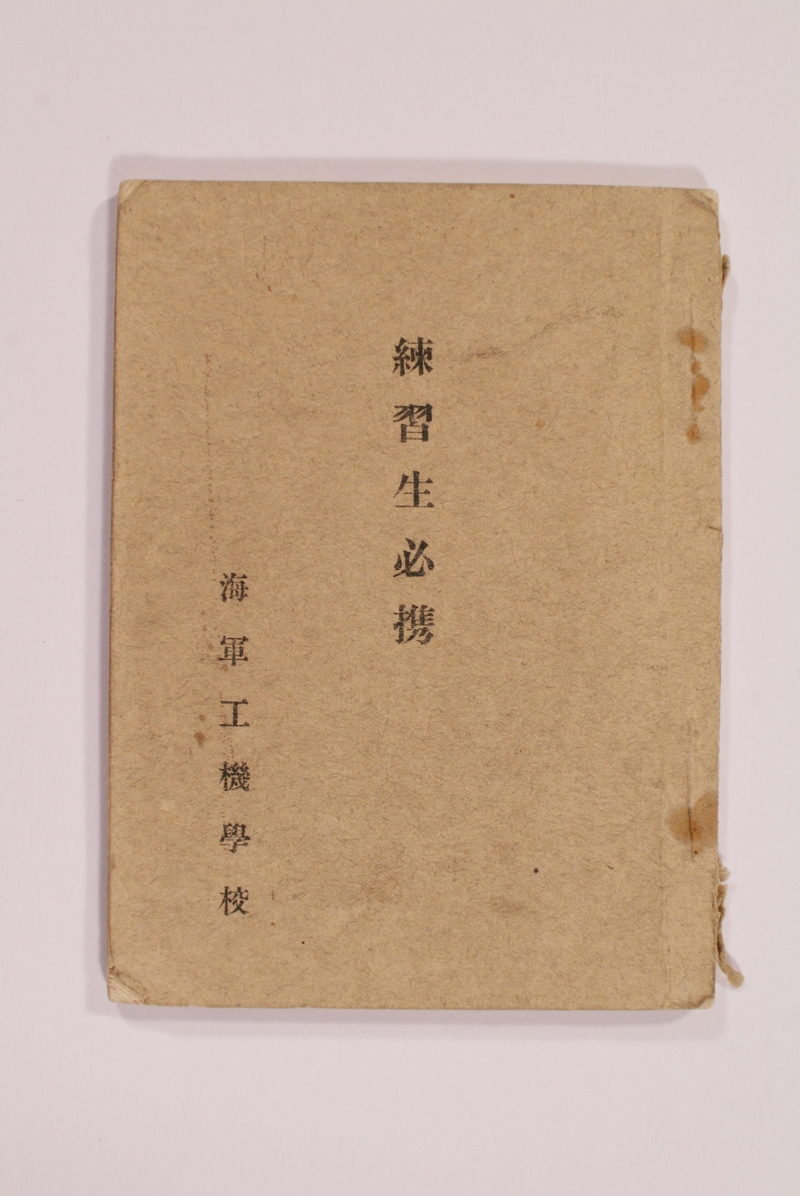 練習生必携
海軍工機學校